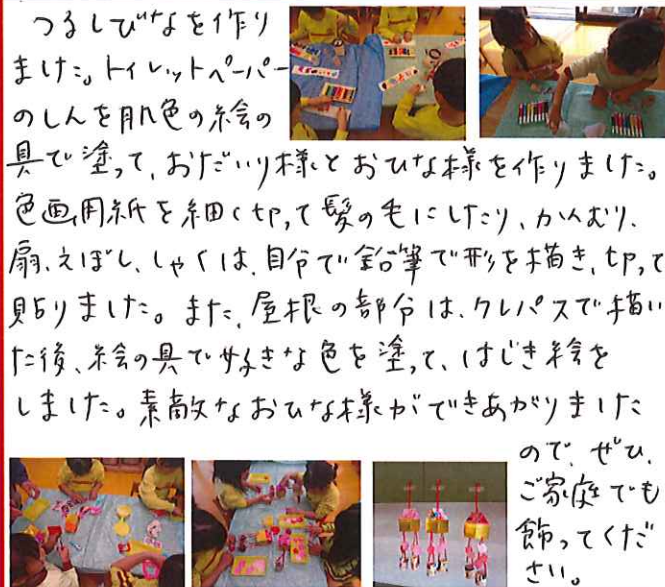 つるしびなを作り
ました。トイレットペーパー
のしんを肌色の絵の
具で塗って、おだいり様とおひな様を作りました。
色画用紙を細く切って髪の毛にしたり、かんむり、
扇、えぼし、しゃくは、自分で鉛筆で形を描き、切って
貼りました。また、屋根の部分は、クレパスで描い
た後、絵の具で好きな色を塗って、はじき絵を
しました。素敵なおひな様ができあがりました
ので、ぜひ、
ご家庭でも
飾ってくだ
さい。